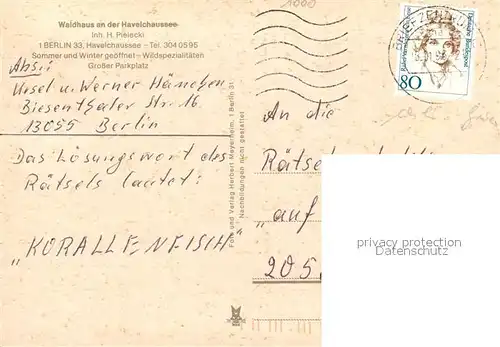 Waldhaus an der Havelchaussee
Inh. H. Pielecki
1 BERLIN 33, Havelchaussee - Tel. 3040595
Sommer und Winter geöffnet - Wildspezialitäten
Großer Parkplatz
Abs.:
Ursel u. Werner Hänchen
Biesenthaler Str. 16
13055 Berlin
Das Lösungswort des
Rätsels lautet:
„KORALLENFISCH"
Foto und Verlag Herbert Meyerheim, 1 Berlin 31
Nachbildungen nicht gestattet
1000
BRIEFZENTRUM
Deutsche Bundespost
80
An die
Rätsel
"auf
205
privacy protection
Datenschutz